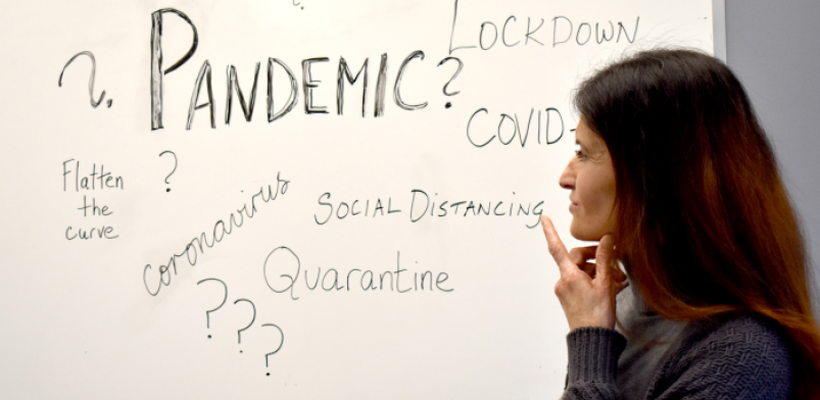 ?
LOCKDOWN
?
PANDEMIC?
COVID-
Flatten
the
curve
?
coronavirus
SOCIAL DISTANCING
Quarantine
?
?
?